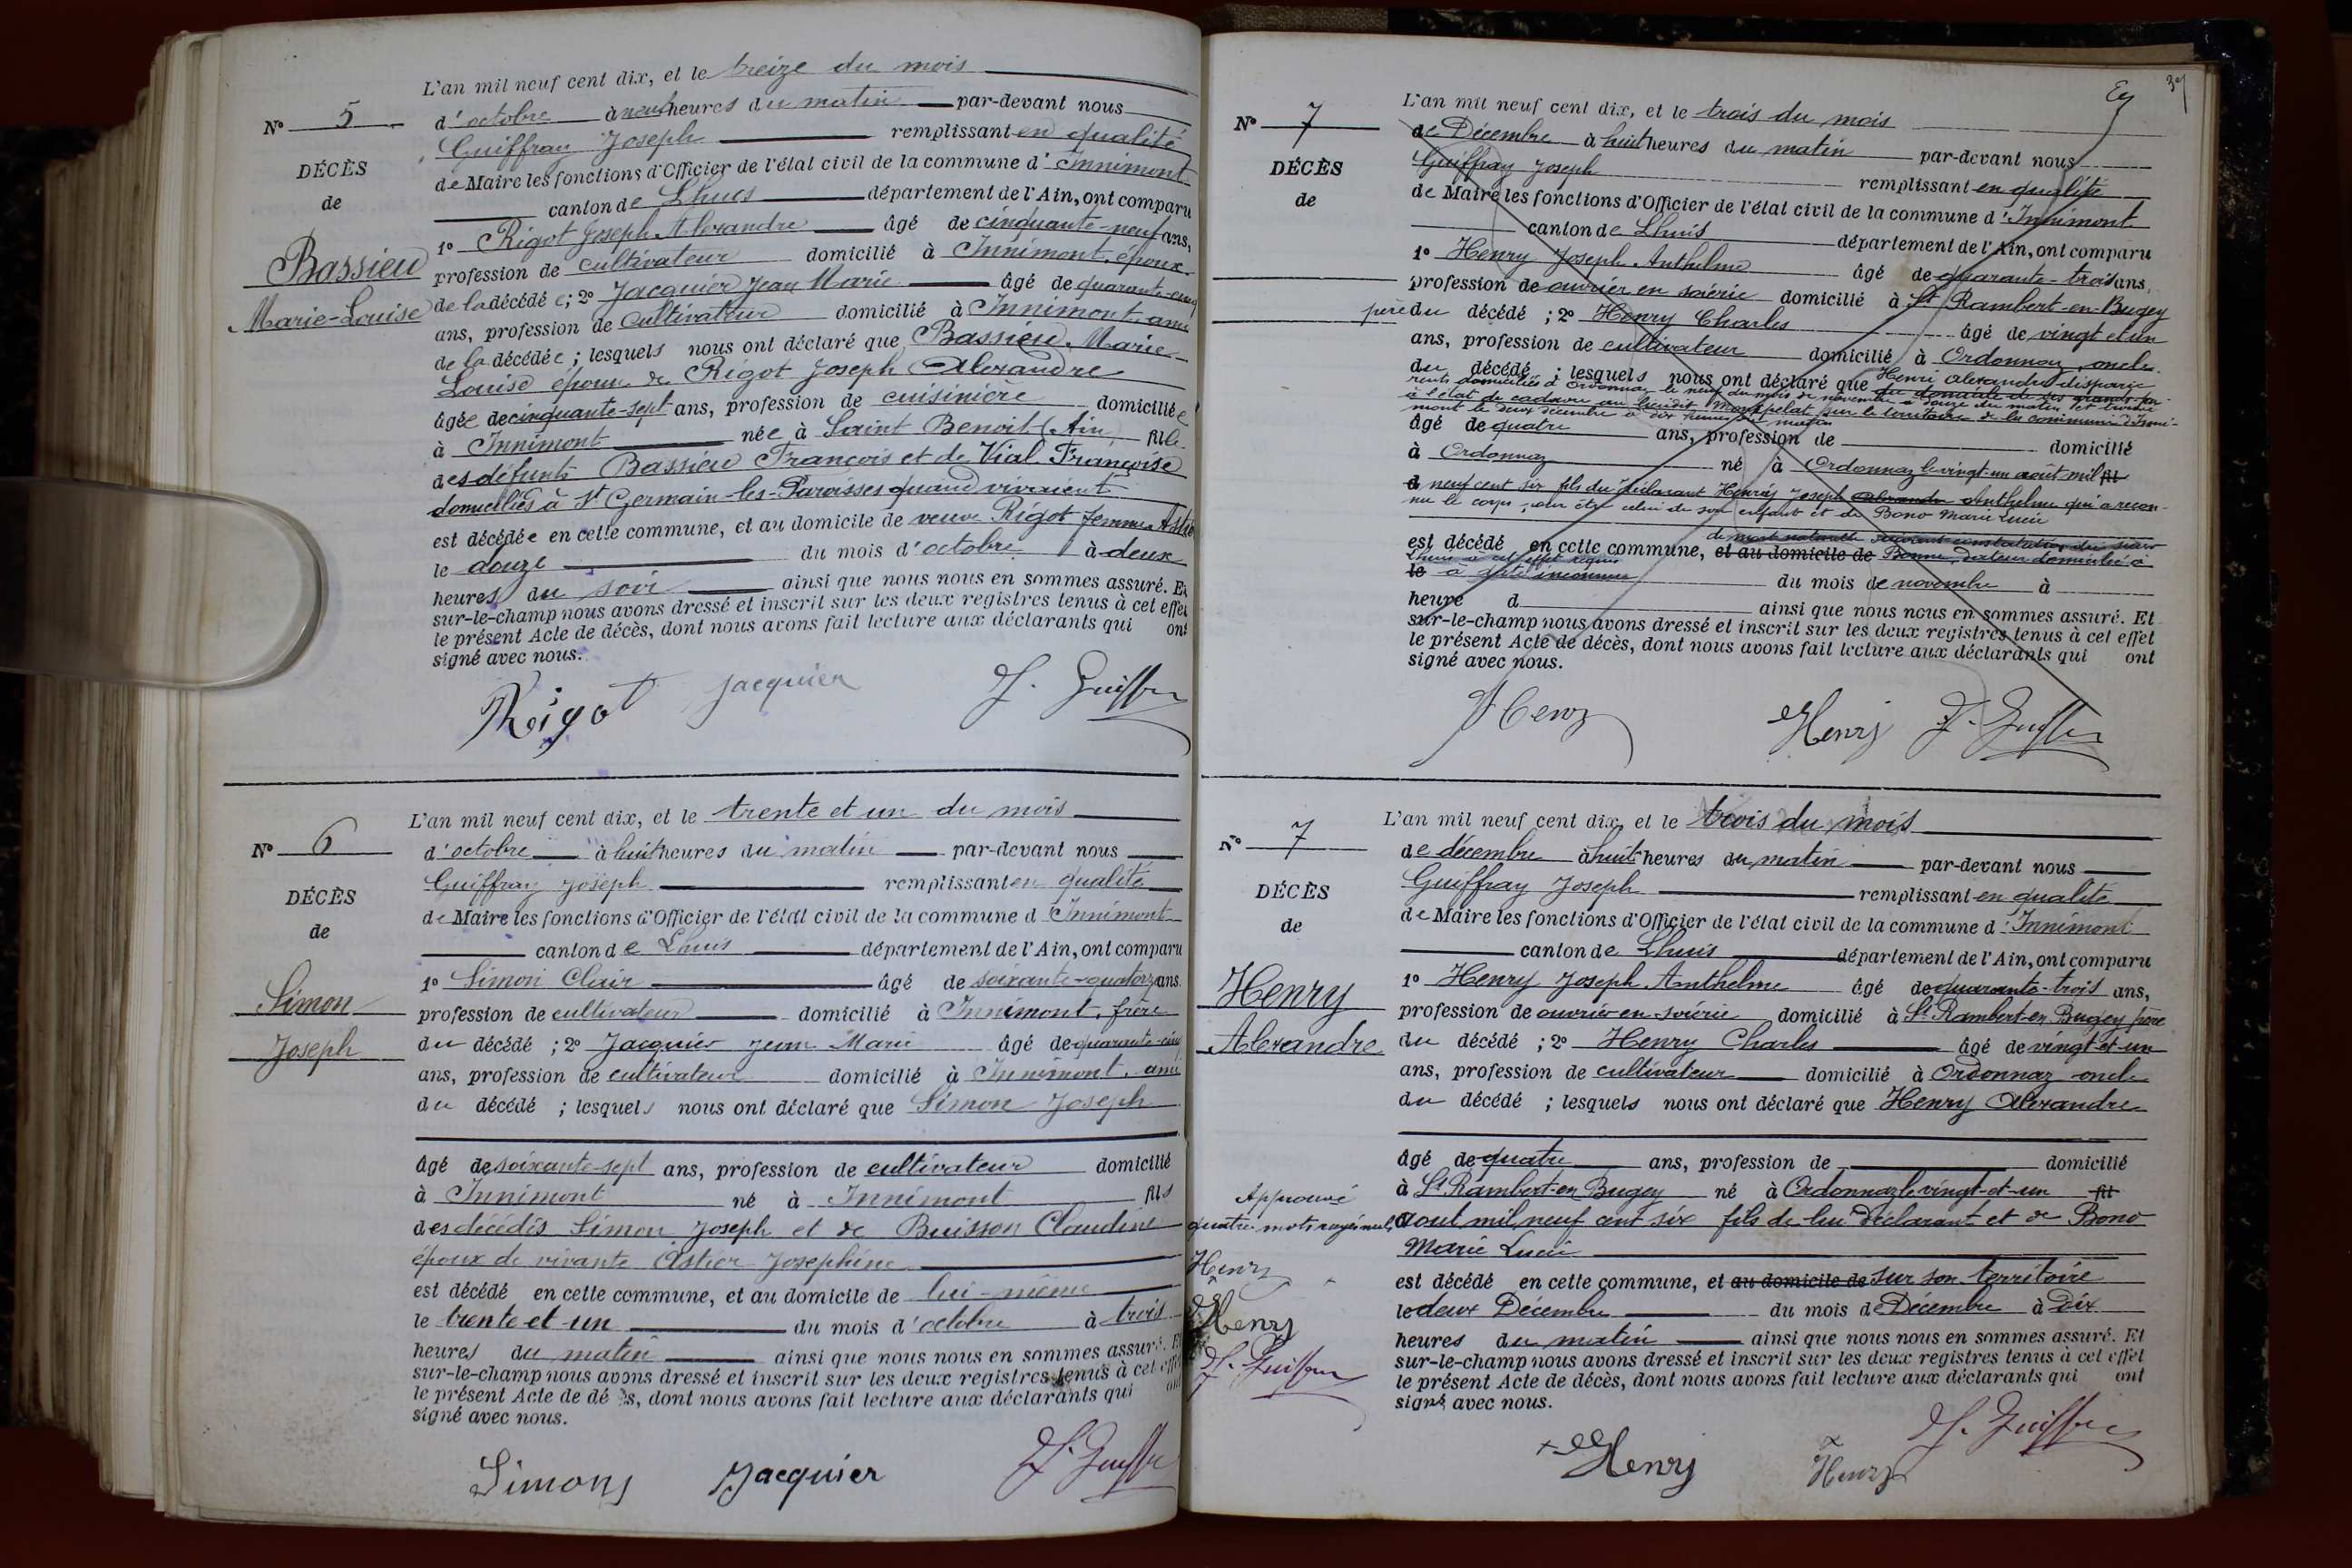 L'an mil neuf cent dix, et le treize du mois
N° 5
d'octobre à neuf heures du matin par-devant nous
Guiffray Joseph remplissant en qualité
DÉCÈS
de Maire les fonctions d'Officier de l'état civil de la commune d'Innimont
de
canton de Lhuis département de l'Ain, ont comparu
1° Rigot Joseph Alexandre âgé de cinquante-neuf ans,
Bassieu
profession de cultivateur domicilié à Innimont, époux
Marie-Louise
de la décédée; 2° Jacquier Jean Marie âgé de quarante-cinq
ans, profession de cultivateur domicilié à Innimont, ami
de la décédée; lesquels nous ont déclaré que Bassieu Marie
Louise épouse de Rigot Joseph Alexandre
âgée de cinquante-sept ans, profession de cuisinière domiciliée
à Innimont née à Saint Benoit (Ain fille
des défunts Bassieu François et de Vial Françoise
domiciliés à St Germain-les-Paroisses quand vivaient
est décédée en cette commune, et au domicile de veuve Rigot femme Astier
le douze du mois d'octobre à deux
heures du soir ainsi que nous nous en sommes assuré. Et
sur-le-champ nous avons dressé et inscrit sur les deux registres tenus à cet effet
le présent Acte de décès, dont nous avons fait lecture aux déclarants qui ont
signé avec nous.
Rigot Jacquier J. Guiffray
L'an mil neuf cent dix, et le trente et un du mois
N° 6
d'octobre à huit heures du matin par-devant nous
Guiffray Joseph remplissant en qualité
DÉCÈS
de Maire les fonctions d'Officier de l'état civil de la commune d'Innimont
de
canton de Lhuis département de l'Ain, ont comparu
1° Simon Clair âgé de soixante-quatorze ans
Simon
profession de cultivateur domicilié à Innimont, frère
Joseph
du décédé; 2° Jacquier Jean Marie âgé de quarante-cinq
ans, profession de cultivateur domicilié à Innimont, ami
du décédé; lesquels nous ont déclaré que Simon Joseph
âgé de soixante-sept ans, profession de cultivateur domicilié
à Innimont né à Innimont fils
des décédés Simon Joseph et de Buisson Claudine
époux de vivante Astier Josephine
est décédé en cette commune, et au domicile de lui-même
le trente et un du mois d'octobre à trois
heures du matin ainsi que nous nous en sommes assuré. Et
sur-le-champ nous avons dressé et inscrit sur les deux registres tenus à cet effet
le présent Acte de décès, dont nous avons fait lecture aux déclarants qui ont
signé avec nous.
Simon Jacquier J. Guiffray
37
L'an mil neuf cent dix, et le trois du mois
N° 7
de Décembre à huit heures du matin par-devant nous
Guiffray Joseph remplissant en qualité
DÉCÈS
de Maire les fonctions d'Officier de l'état civil de la commune d'Innimont
de
canton de Lhuis département de l'Ain, ont comparu
1° Henry Joseph Anthelme âgé de quarante-trois ans,
profession de ouvrier en soierie domicilié à St Rambert-en-Bugey
père du décédé; 2° Henry Charles âgé de vingt et un
ans, profession de cultivateur domicilié à Ordonnaz, oncle
du décédé; lesquels nous ont déclaré que Henri Alexandre disparu
du domicile de ses grands-pa-
rents domiciliés à Ordonnaz le neuf du mois de novembre à douze du matin et trouvé
à l'état de cadavre au lieu dit Montpelat sur le territoire de la commune d'Inni-
mont le deux décembre à dix heures du matin
âgé de quatre ans, profession de domicilié
à Ordonnaz né à Ordonnaz le vingt-un août mil fil
d neuf cent six fils du déclarant Henry Joseph Alexandre Anthelme qui a recon-
nu le corps, pour être celui de son enfant et de Bono Marie Lucie
de mort naturelle suivant constatation du sieur
est décédé en cette commune, et au domicile de Bonne, docteur domicilié à
Lhuis à cet effet requis
le à date inconnue du mois de novembre à
heure d ainsi que nous nous en sommes assuré. Et
sur-le-champ nous avons dressé et inscrit sur les deux registres tenus à cet effet
le présent Acte de décès, dont nous avons fait lecture aux déclarants qui ont
signé avec nous.
Henry Henry J. Guiffray
L'an mil neuf cent dix, et le trois du mois
N° 7
de décembre à huit heures du matin par-devant nous
Guiffray Joseph remplissant en qualité
DÉCÈS
de Maire les fonctions d'Officier de l'état civil de la commune d'Innimont
de
canton de Lhuis département de l'Ain, ont comparu
1° Henry Joseph Anthelme âgé de quarante-trois ans,
Henry
profession de ouvrier en soierie domicilié à St Rambert-en Bugey père
Alexandre
du décédé; 2° Henry Charles âgé de vingt-et-un
ans, profession de cultivateur domicilié à Ordonnaz oncle
du décédé; lesquels nous ont déclaré que Henry Alexandre
âgé de quatre ans, profession de domicilié
à St Rambert-en Bugey né à Ordonnaz le vingt-et-un fil
Approuvé
quatre mots rayés nuls
aout mil neuf cent six fils de lui déclarant et de Bono
Marie Lucie
Henry
est décédé en cette commune, et au domicile de sur son territoire
Henry
le deux Décembre du mois de Décembre à Dix
J. Guiffray
heures du matin ainsi que nous nous en sommes assuré. Et
sur-le-champ nous avons dressé et inscrit sur les deux registres tenus à cet effet
le présent Acte de décès, dont nous avons fait lecture aux déclarants qui ont
signé avec nous.
Henry Henry J. Guiffray